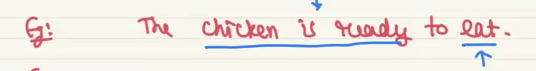 Eg: The chicken is ready to eat.